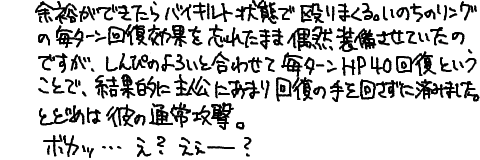 余裕ができたらバイキルト状態で殴りまくる。いのちのリング
の毎ターン回復効果を忘れたまま偶然装備させていたの
ですが、しんぴのよろいと合わせて毎ターンHP40回復という
ことで、結果的に主公にあまり回復の手を回さずに済みました。
とどめは彼の通常攻撃。
ボカッ…え？ええー？